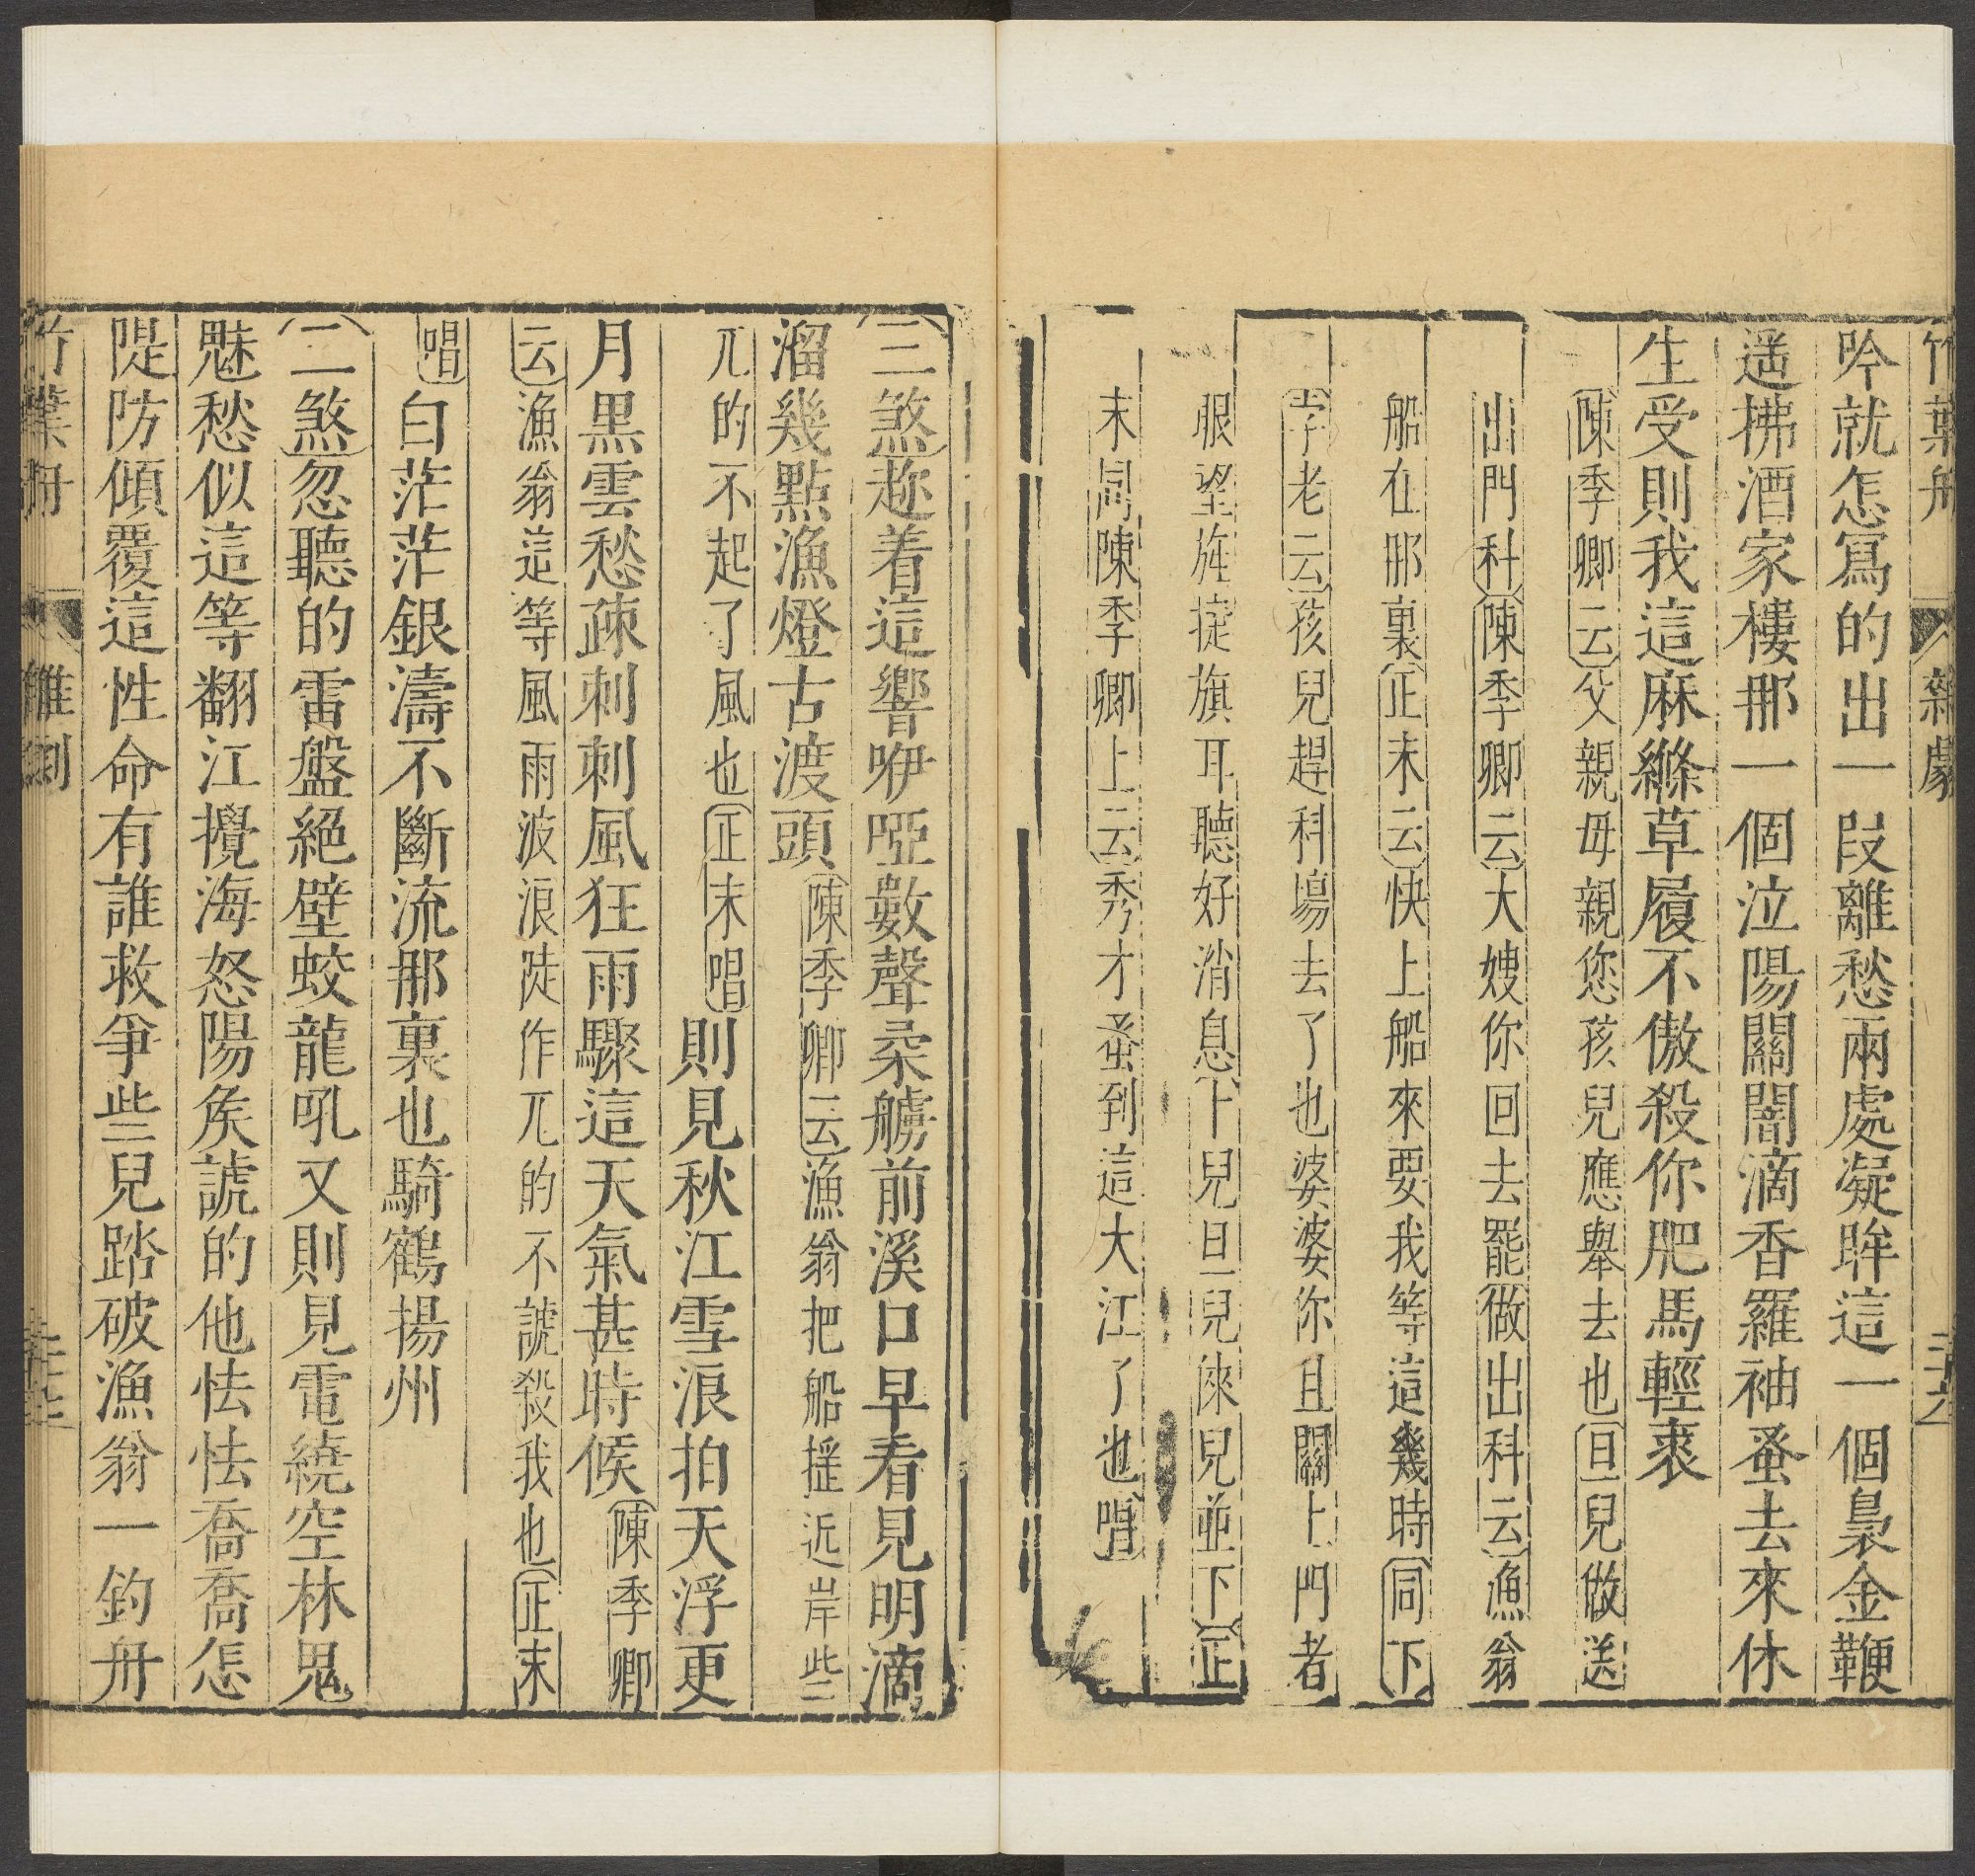 竹葉舟 雜劇 二十六
吟就怎寫的出一段離愁兩處凝眸這一個裊金鞭
遥拂酒家樓那一個泣陽關闇滴香羅袖蚤去來休
生受則我這麻縧草履不傲殺你肥馬輕裘
陳季卿云父親母親您孩兒應舉去也旦兒做送
出門科陳季卿云大嫂你回去罷做出科云漁翁
船在那裏正末云快上船來要我等這幾時同下
孛老云孩兒趕科塲去了也婆婆你且關上門者
眼望旌捷旗耳聽好消息卜兒旦兒俫兒並下正
末同陳季卿上云秀才蚤到這大江了也唱
三煞趂着這響咿啞數聲柔艣前溪口早看見明滴
溜幾點漁燈古渡頭陳季卿云漁翁把船摇近岸些
兀的不起了風也正末唱則見秋江雪浪拍天浮更
月黒雲愁疎刺刺風狂雨驟這天氣甚時候陳季卿
云漁翁這等風雨波浪陡作兀的不諕殺我也正末
唱白茫茫銀濤不斷流那裏也騎鶴揚州
二煞忽聽的雷盤絕壁蛟龍吼又則見電繞空林鬼
魅愁似這等翻江攪海怒陽矦諕的他怯怯喬喬怎
隄防傾覆這性命有誰救爭些兒踏破漁翁一釣舟
竹葉舟 雜劇